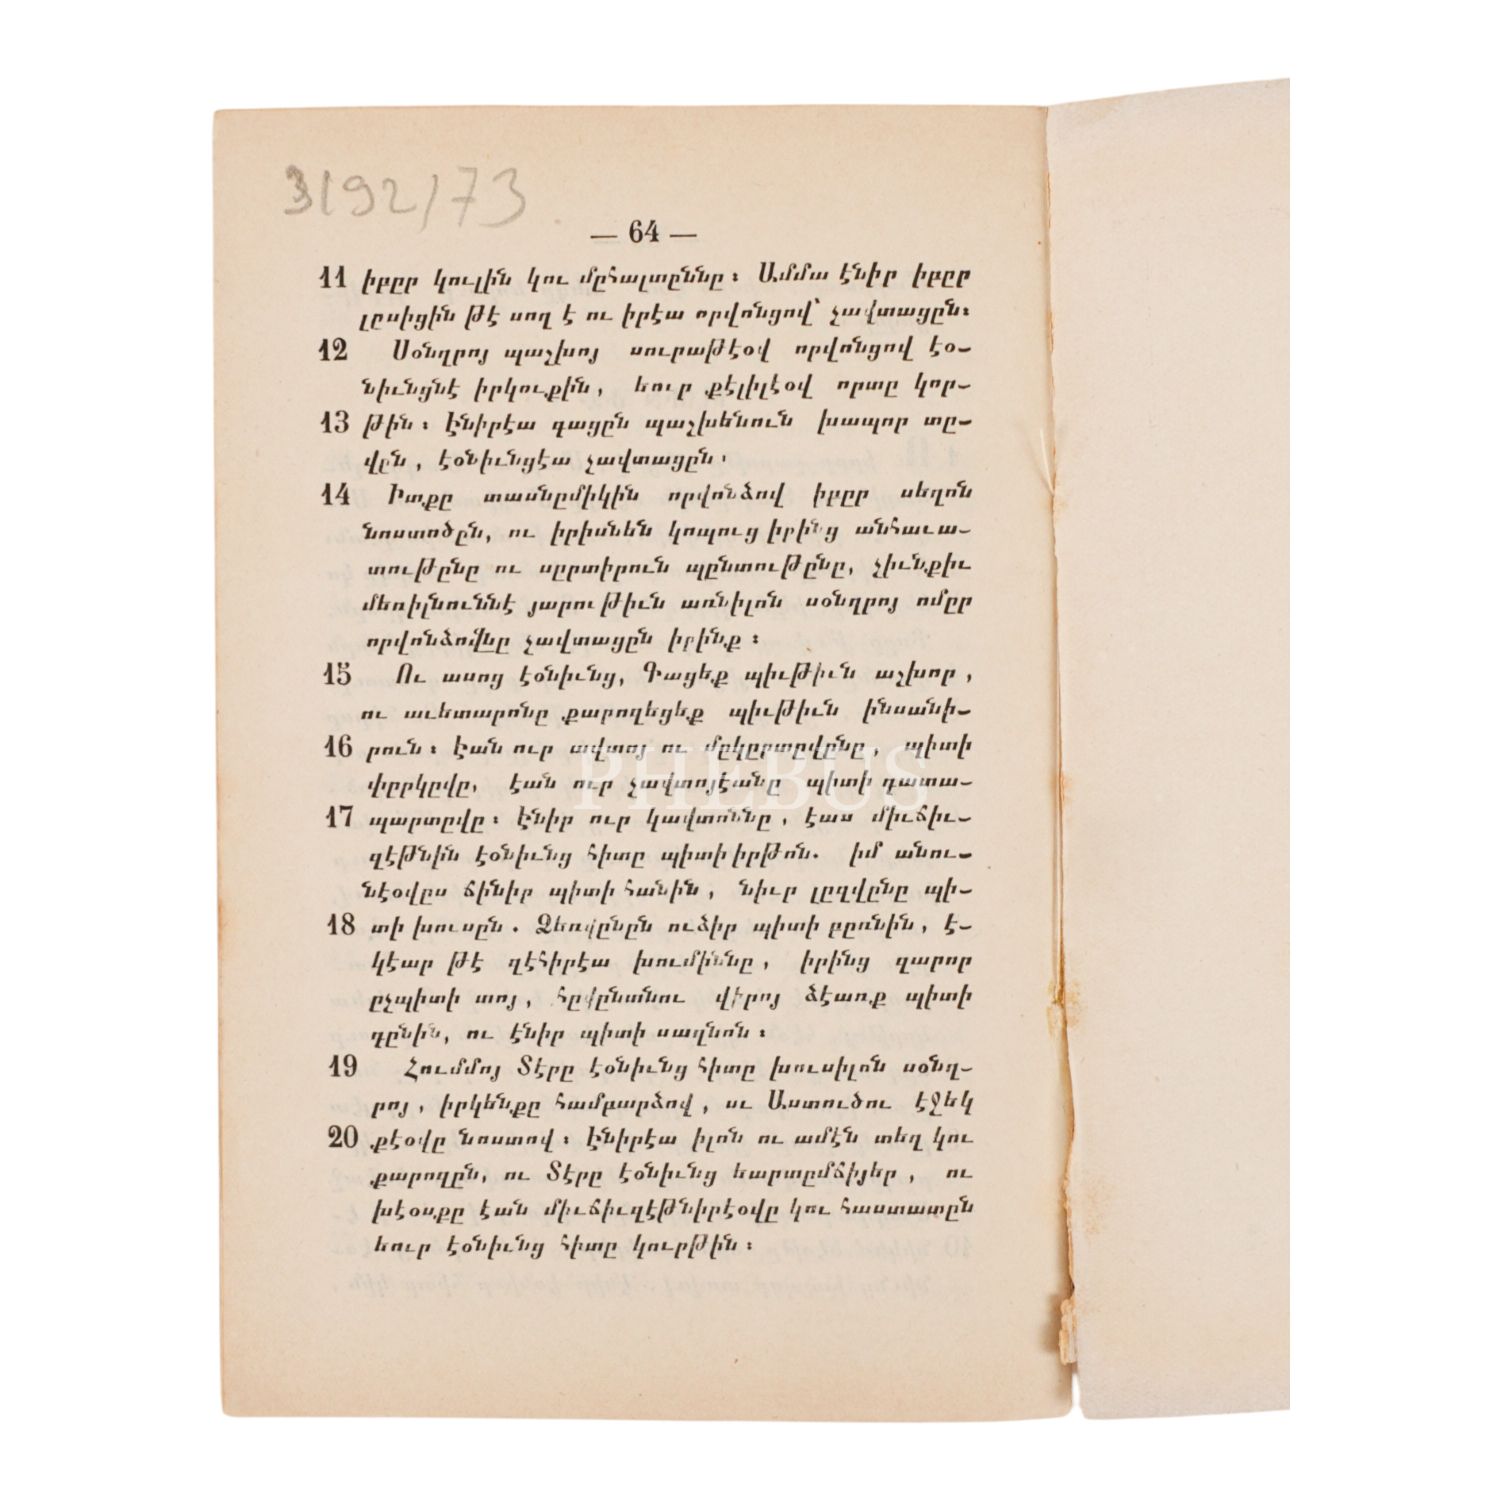 3192/73
— 64 —
11 իբըր կուլին կու մըհալտըննը։ Ամմա էնիր իբըր
լըսիցին թէ սող է ու իրէա որվոնցով՝ չավտացըն։
12 Սօնղրոյ պաչխոյ սուրաթէօվ որվոնցով էօ–
նիւնցնէ իրկուքին, եուր քէլիլէօվ որտը կոր–
13 թին։ Էնիրէա գացըն պաչխենուն խապոր տը–
վըն, էօնիւնցէա չավտացըն։
14 Իտքը տասնըմիկին որվոնձով իբըր սեղոն
նոստոծըն, ու իրիսնեն կոպուց իրինց անհաւա–
տութընը ու սըրտիրուն պընտութընը, չիւնքիւ
մեռիլնուննէ յարութիւն առնիլոն սօնղրոյ ոմըր
որվոնձովնը չավտացըն իրինք։
15 Ու ասոց էօնիւնց, Գացեք պիւթիւն աչխոր,
ու աւետարոնը քարողեցեք պիւթիւն ինսանի–
16 րուն։ Էան ուր ավտոյ ու մըկըրտըվընը, պիտի
փըրկըվը, էան ուր չավտոյէանը պիտի դատա–
17 պարտըվը։ Էնիր ուր կավտոննը, էաս միւճիւ–
զէթնին էօնիւնց հիտը պիտի իրթոն. իմ անու–
նէօվըս ճինիր պիտի հանին, նիւր լըզվընը պի–
18 տի խուսըն. Ձեռվընըն ուձիր պիտի բըռնին, է–
կէար թէ զէհիրէա խումիննը, իրինց զարոր
ըչպիտի տոյ, հըվընտնու վիրոյ ձէառք պիտի
դընին, ու էնիր պիտի սաղնոն։
19 Հումմոյ Տէրը էօնիւնց հիտը խուսիլոն սօնղ–
րոյ, իրկենքը համբարձով, ու Աստուծու էջեկ
20 քէօվը նոստով։ Էնիրէա իլոն ու ամէն տեղ կու
քարողըն, ու Տէրը էօնիւնց եարտըմճիյեր, ու
խէօսքը էան միւճիւզէթնիրէօվը կու հաստատըն
եուր էօնիւնց հիտը կուրթին։
PHEBUS